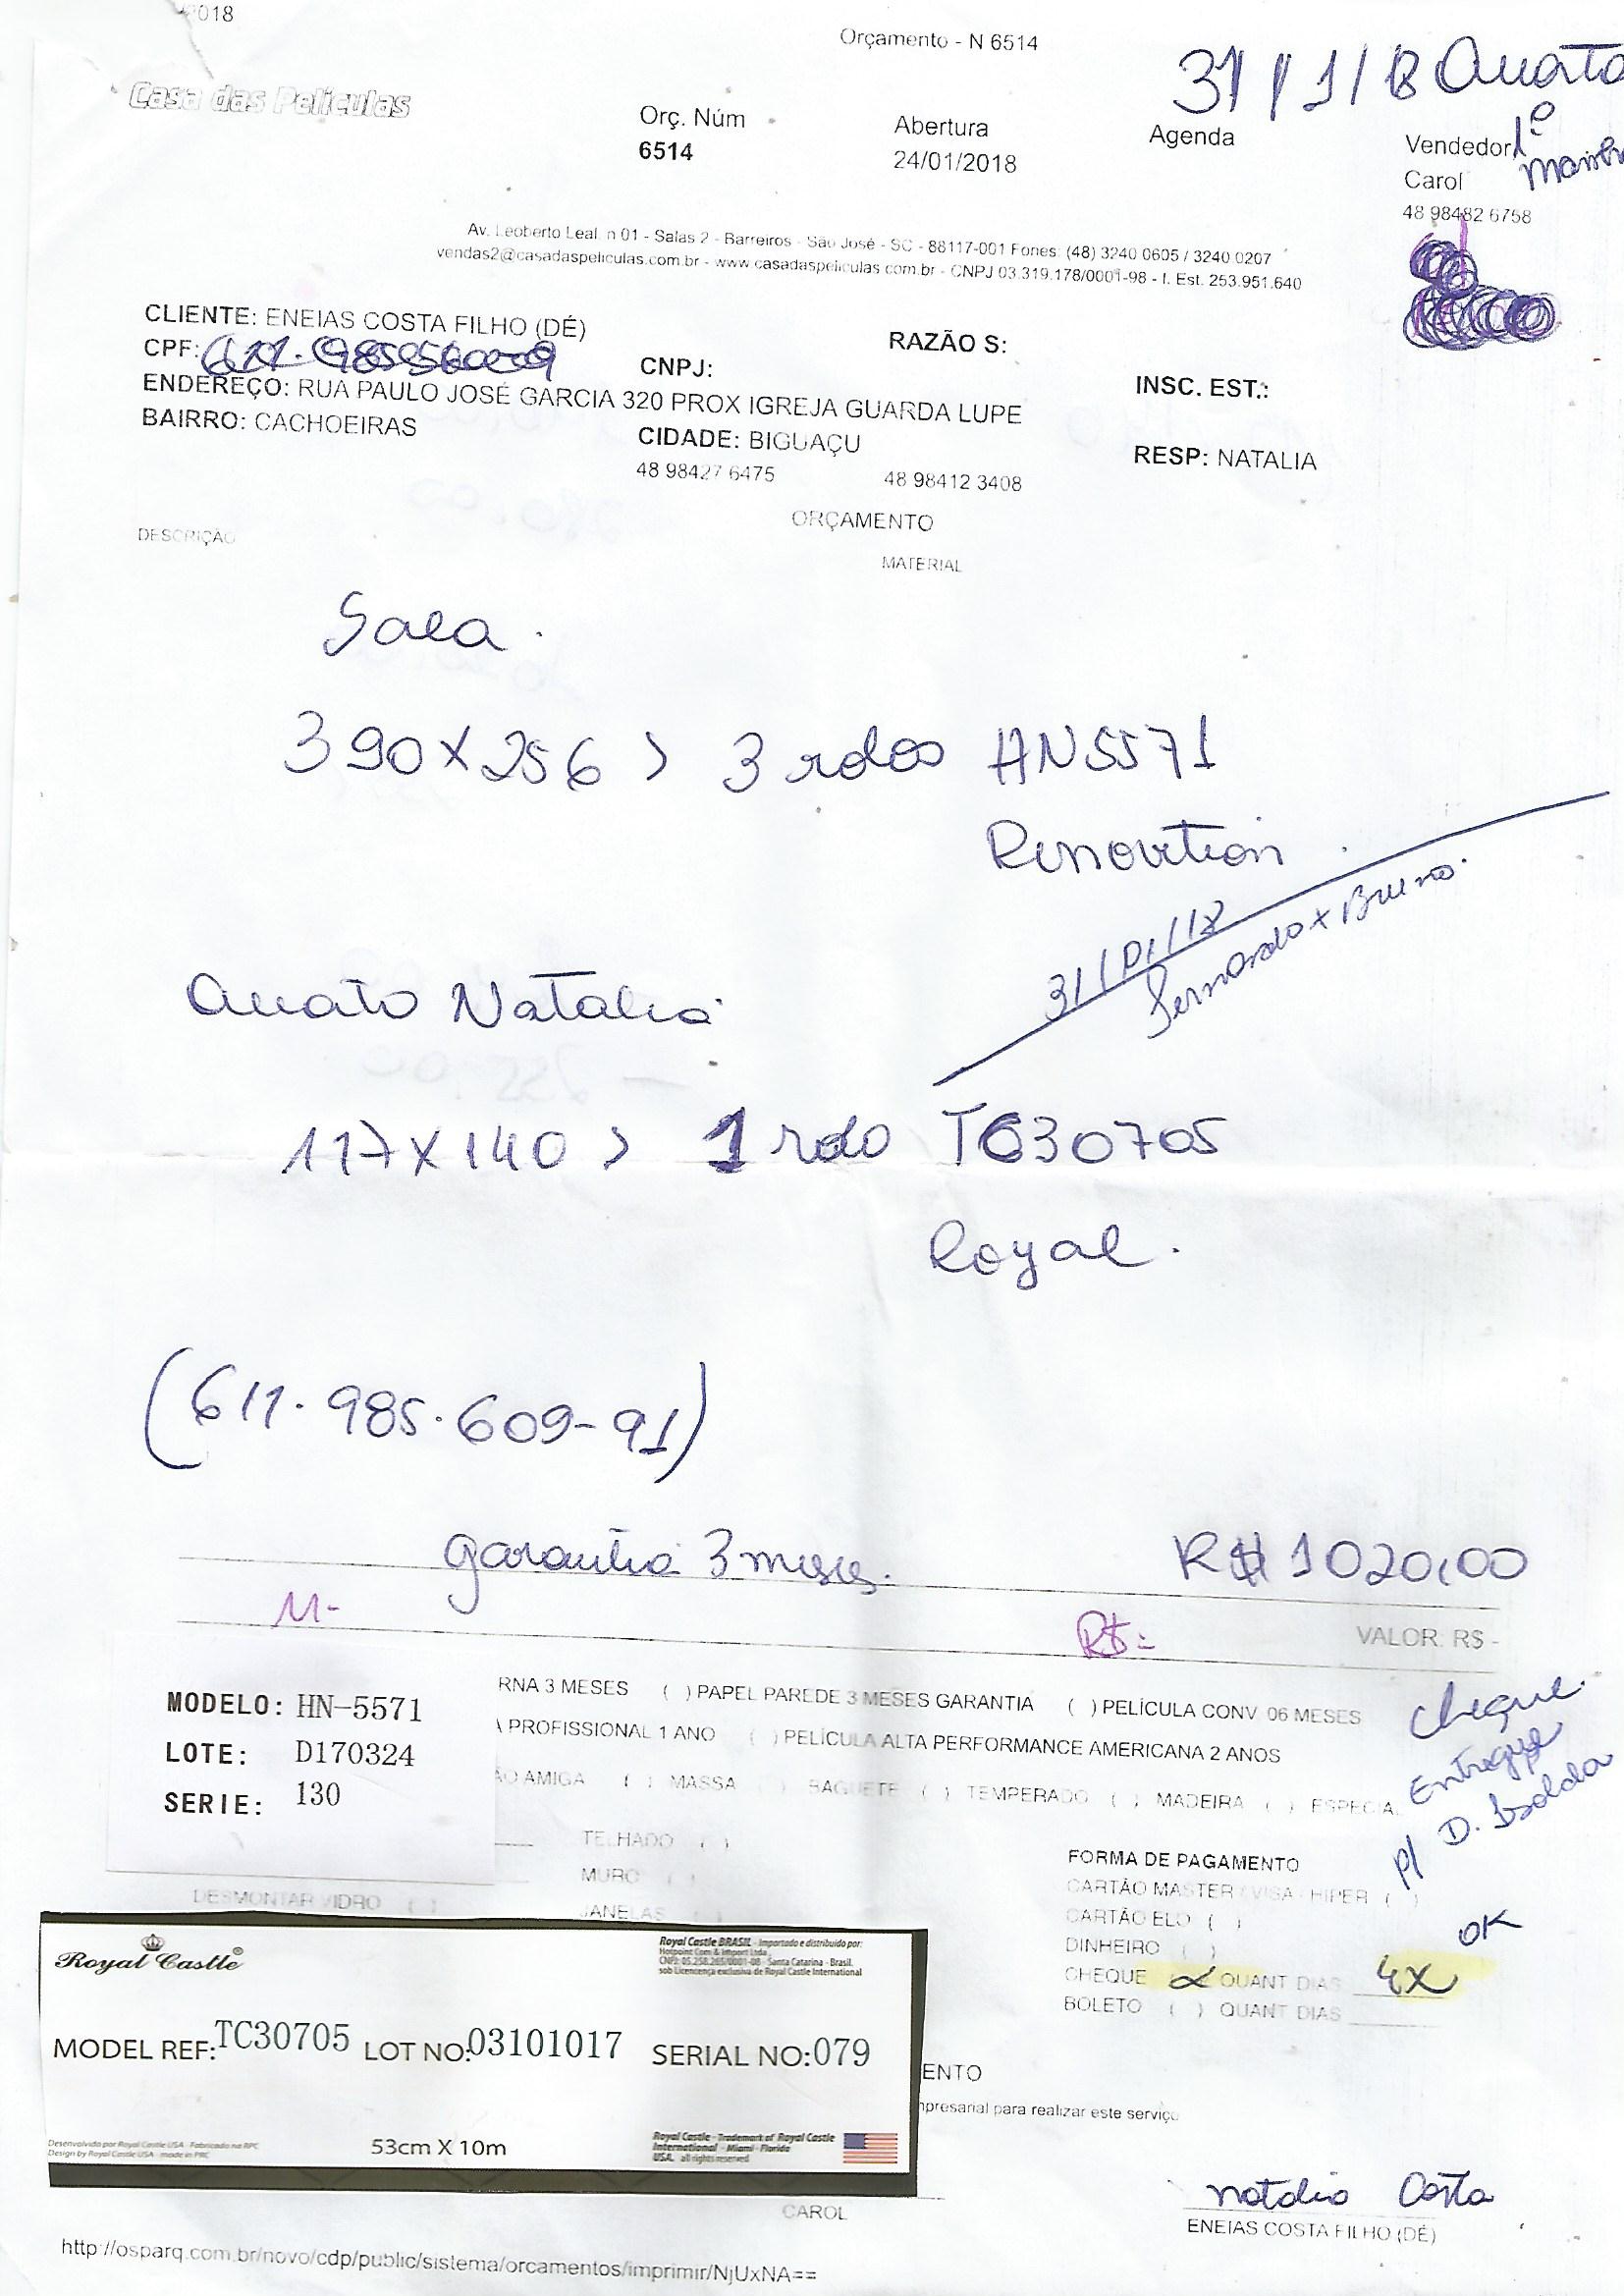 2018
Orçamento - N 6514
31/1/18 Quarta
Casa das Películas
Orç. Núm
6514
Abertura
24/01/2018
Agenda
Vendedor
Carol
48 98482 6758
1º
Av. Leoberto Leal n 01 - Salas 2 - Barreiros - São José - SC - 88117-001 Fones: (48) 3240 0605 / 3240 0207
vendas2@casadaspeliculas.com.br - www.casadaspeliculas.com.br - CNPJ 03.319.178/0001-98 - I. Est. 253.951.640
CLIENTE: ENEIAS COSTA FILHO (DÉ)
RAZÃO S:
CPF:
CNPJ:
INSC. EST.:
ENDEREÇO: RUA PAULO JOSÉ GARCIA 320 PROX IGREJA GUARDA LUPE
BAIRRO: CACHOEIRAS
CIDADE: BIGUAÇU
RESP: NATALIA
48 98427 6475
48 98412 3408
ORÇAMENTO
DESCRIÇÃO
MATERIAL
Sala.
390x256 > 3 rolos HN5571
Renovation
31/01/18
Fernando x Bruno.
Quarto Natalia
117x140 > 1 rolo TC30705
Royal.
(611.985.609-91)
garantia 3 meses.
R$ 1020,00
M-
R$-
VALOR: R$ -
MODELO: HN-5571
LOTE: D170324
SERIE: 130
RNA 3 MESES ( ) PAPEL PAREDE 3 MESES GARANTIA ( ) PELÍCULA CONV 06 MESES
PROFISSIONAL 1 ANO ( ) PELÍCULA ALTA PERFORMANCE AMERICANA 2 ANOS
ÃO AMIGA ( ) MASSA ( ) BAGUETE ( ) TEMPERADO ( ) MADEIRA ( ) ESPECIA
cheque.
Entregue
p/ D. Isolda
OK
TELHADO ( )
MURO ( )
DESMONTAR VIDRO ( )
JANELAS
FORMA DE PAGAMENTO
CARTÃO MASTER - VISA - HIPER ( )
CARTÃO ELO ( )
DINHEIRO ( )
CHEQUE x QUANT DIAS 4x
BOLETO ( ) QUANT DIAS
Royal Castle®
Royal Castle BRASIL - Importado e distribuido por:
Hotpoint Com & Import Ltda
CNPJ: 05.258.265/0001-08 - Santa Catarina - Brasil.
sob Licencença exclusiva de Royal Castle International
MODEL REF: TC30705 LOT NO: 03101017 SERIAL NO: 079
Desenvolvido por Royal Castle USA - Fabricado na RPC
Design by Royal Castle USA - made in PRC
53cm X 10m
Royal Castle - Trademark of Royal Castle
International - Miami - Florida
USA. all rights reserved
ENTO
mpresarial para realizar este serviço
CAROL
Natalia Costa
ENEIAS COSTA FILHO (DÉ)
http://osparq.com.br/novo/cdp/public/sistema/orcamentos/imprimir/NjUxNA==